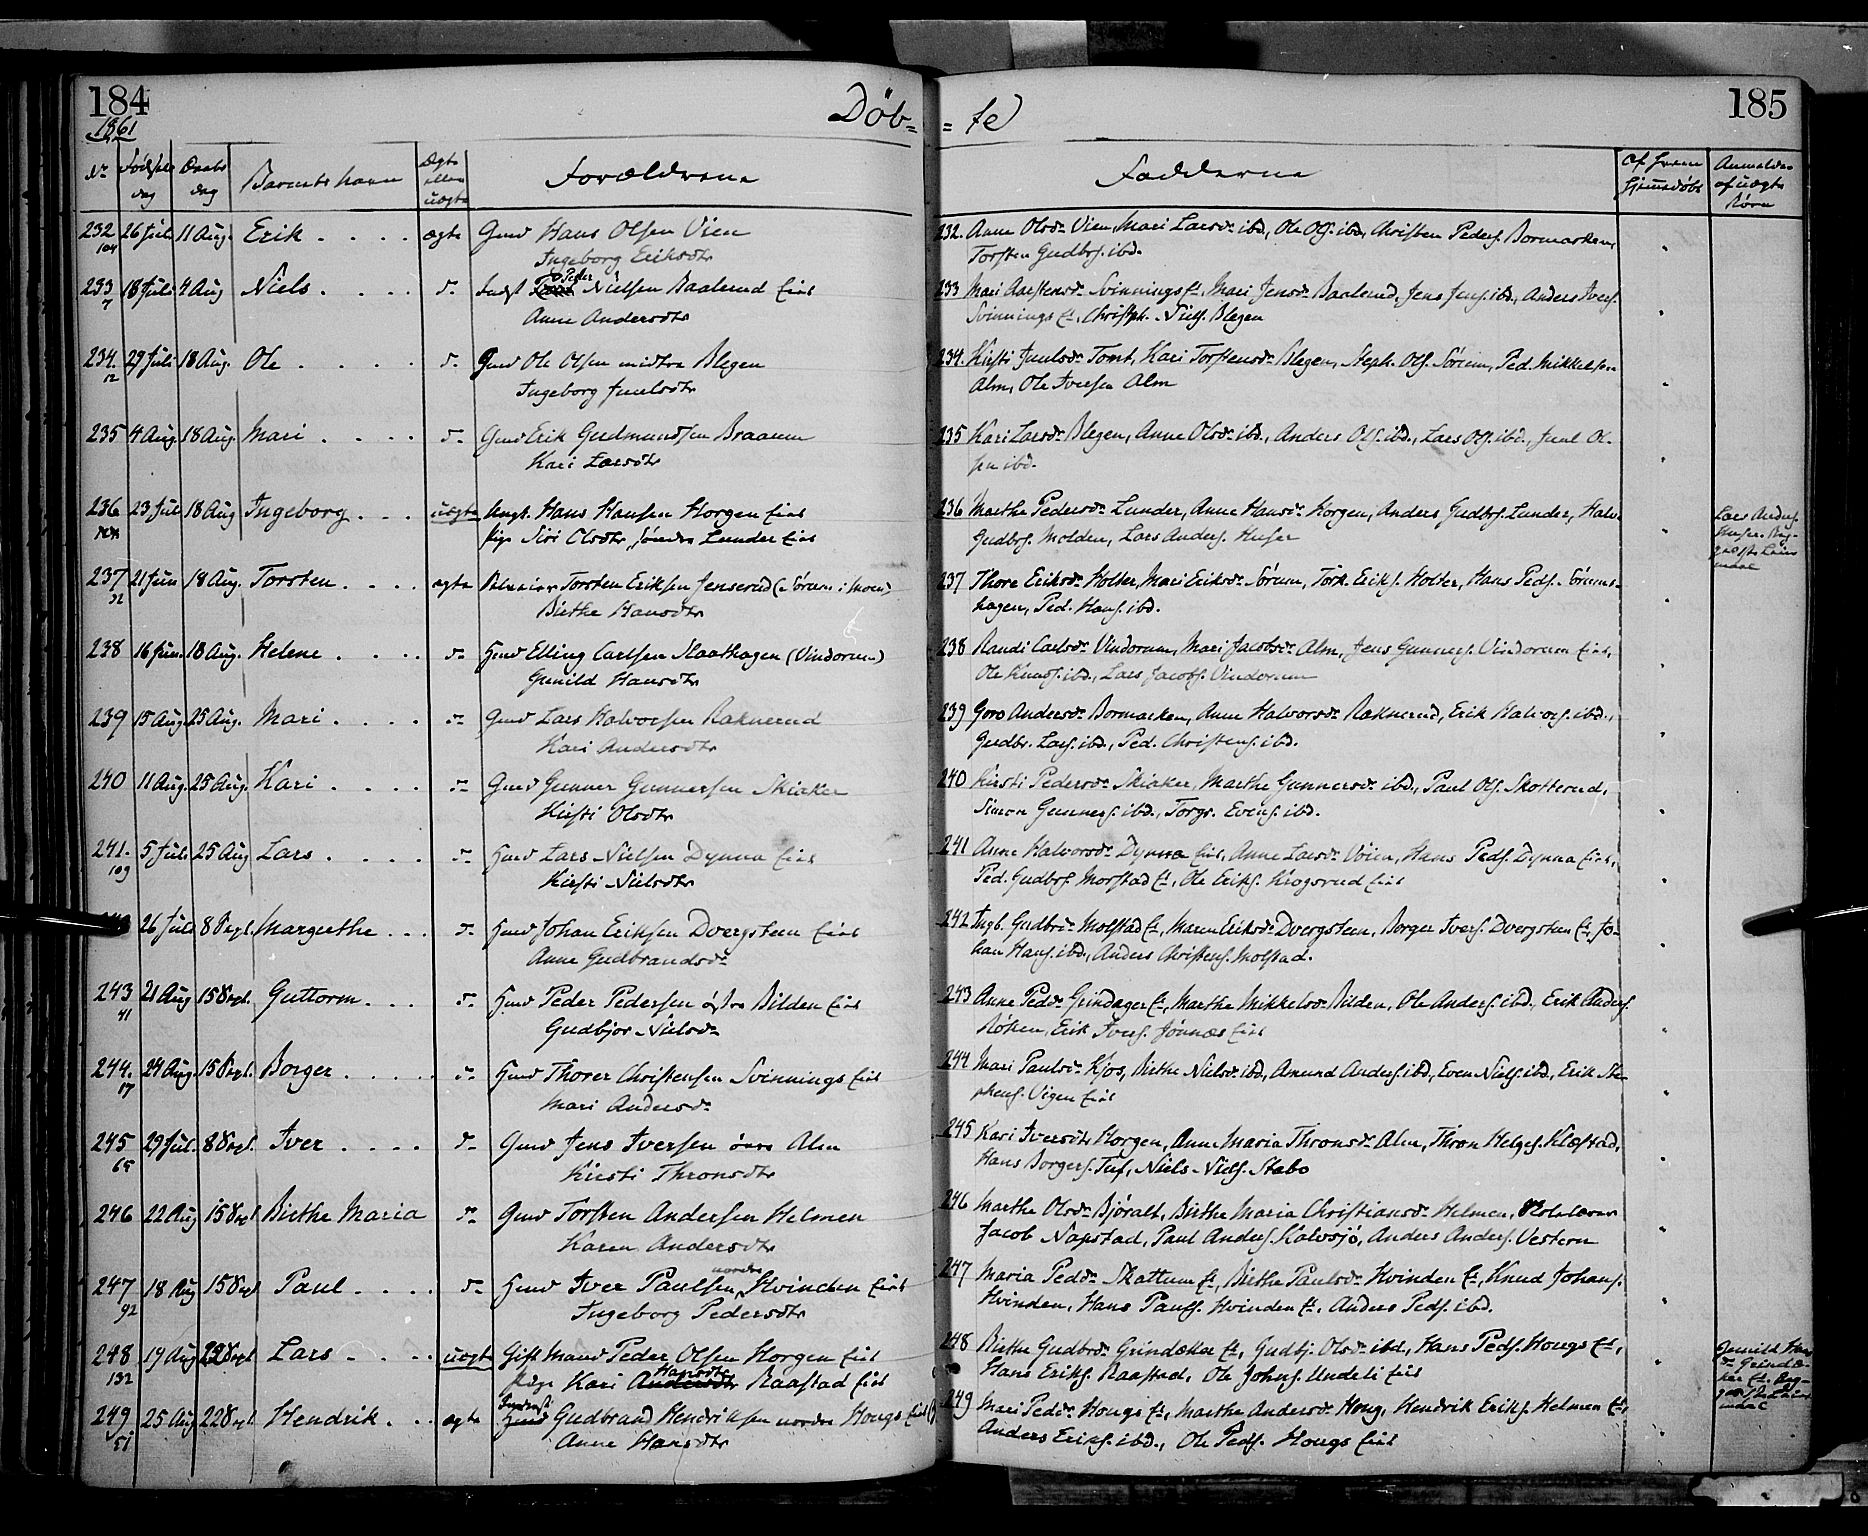 184
1861
Döb=
Nr
Födsels
dag
Daabs
dag
Barnets Navn
Ægte
eller
uægte
Forældrene
232 26 Juli 11 Aug. Erik . . . . ægte Gmd Hans Olsen Vien
104 Ingeborg Eriksdtr
233 18 Juli 4 Aug Niels . . . . d- Indst Peder Nielsen Baalerud Eie
7 Anne Andersdtr
234. 29 Juli 18 Aug. Ole . . . . d- Gmd Ole Olsen midtre Blegen
12 Ingeborg Juulsdtr
235 4 Aug. 18 Aug. Mari . . . . d- Gmd Erik Gudmundsen Braaum
Kari Larsdtr
236 23 Jul 18 Aug Ingeborg . . . uægte Ungk. Hans Hansen Horgen Eie
Pige Siri Olsdtr söndre Lunder Eie
237 21 Juni 18 Aug. Torsten . . . . ægte Torsten Eriksen Jenserud (Sörum i Moen)
32 Birthe Hansdtr
238 16 Juni. 18 Aug. Helene . . . . d- Hmd Elling Carlsen Slaathagen (Vindorum)
Gunild Hansdtr
239 15 Aug 25 Aug. Mari . . . . d- Gmd Lars Halvorsen Raknerud
Kari Andersdtr
240 11 Aug. 25 Aug. Kari . . . . d- Gmd Gunner Gunnersen Skiaker
Kirsti Olsdtr
241. 5 Juli 25 Aug Lars . . . . d- Hmd Lars Nielsen Dynna Eie
109 Kirsti Nielsdtr
26 Juli 8 Sept. Margrethe . . . d- Hmd Johan Eriksen Dvergsteen Eie
Anne Gudbrandsdr
243 21 Aug 15 Sept. Guttorm . . . d- Hmd Peder Pedersen östre Bilden Eie
41 Gudbjor Nielsdr
244. 24 Aug. 15 Sept. Borger . . . . d- Hmd Thorer Christensen Svinnings Eie
17 Mari Andersdr
245 29 Jul. 8 Sept. Iver . . . . d- Gmd Jens Iversen övre Alm
65 Kirsti Thronsdtr
246 22 Aug 15 Sept Birthe Maria d- Gmd Torsten Andersen Helmen
Karen Andersdtr
247 18 Aug 15 Sept Paul . . . . d- Hmd Iver Paulsen nordre Hvinden Eie
92 Ingeborg Pedersdtr
248 17 Aug 22 Sept Lars . . . . uægte Gift Mand Peder Olsen Horgen Eie
132 Pige Kari Andersdtr Hansdtr Raastad Eie
249 25 Aug 22 Sept. Hendrik . . ægte Hmd Gudbrand Hendriksen nordre Hougs Eie
51 Anne Hansdtr
= te
185
Fadderne
Af hvem
hjemmedöbt
Anmelder
af uægte
Börn
232. Anne Olsdr Vien, Mari Larsdr ibd., Ole Ols. ibd., Christen Peders. Bormarken,
Torsten Gudbrs. ibd.
233 Mari Aarstensdr Svinnings E-, Mari Jensdr Baalerud, Jens Jens. ibd., Anders Ivers.
Svinnings E-, Christph. Niels. Blegen
234. Kirsti Juulsdr Tomt, Kari Torstensdr Blegen, Steph. Ols. Sörum, Ped. Mikkelsen
Alm, Ole Iversen Alm
235 Kari Larsdr Blegen, Anne Olsdr ibd., Anders Ols. ibd., Lars Ols. ibd., Juul Ol-
sen ibd.
236 Marthe Pedersdr Lunder, Anne Hansdr Horgen, Anders Gudbrs. Lunder, Halv.
Gudbrs. Molden, Lars Anders. Huser
Lars Anders.
237 Thore Eriksdr Holter, Mari Eriksdr Sörum, Tork. Eriks. Holter, Hans Peds. Sörums-
hagen, Ped. Hans. ibd.
238 Randi Carlsdr Vindorum, Mari Jacobsdr Alm, Jens Gunners. Vindorum Eie,
Ole Knuds. ibd., Lars Jacobs. Vindorum
239 Goro Andersdr Bormarken, Anne Halvorsdr Raknerud, Erik Halvors. ibd.,
Gudbr. Lars. ibd., Ped. Christens. ibd.
240 Kirsti Pedersdr Skiaker, Marthe Gunnersdr ibd., Paul Ols. Skotterud,
Simen Gunners. ibd., Torgr. Evens. ibd.
241 Anne Halvorsdr Dynna Eie, Anne Larsdr Vöien, Hans Peds. Dynna Eie,
Ped. Gudbrs. Morstad E-, Ole Eriks. Krogsrud Eie
242 Ingb. Gudbrdr Molstad E-, Maren Eriksdr Dvergsteen, Borger Ivers. Dvergsteen E-, Jo-
han Hans. ibd., Anders Christens. Molstad.
243 Anne Pedsdr Grindager E-, Marthe Mikkelsdr Bilden, Ole Anders. ibd., Erik Anders.
Röken, Erik Ivers. Jönnæs Eie
244 Mari Paulsdr Kjos, Birthe Nielsdr ibd., Amund Anders. ibd., Even Niels. ibd., Erik Ste-
phens. Vigen Eie
245 Kari Iversdtr Horgen, Anne Maria Thronsdr Alm, Thron Helges. Klæstad,
Hans Borgers. Tuf, Niels Niels. Stabo
246 Marthe Olsdr Björalt, Birthe Maria Christiansdr Helmen, Skolelærer
Jacob Napstad, Paul Anders. Kalvsjö, Anders Anders. Vestern
247 Maria Pedsdr Skattum E-, Birthe Paulsdr Hvinden E-, Knud Johans.
Hvinden, Hans Pauls. Hvinden E-, Anders Peds. ibd.
248 Birthe Gudbrdr Grindaker E-, Gudbj. Olsdr ibd., Hans Peds. Hougs E-,
Hans Eriks. Raastad, Ole Johns. Undeli Eie
Gunild
249 Mari Pedsdr Hougs E-, Marthe Andersdr Houg, Hendrik Eriks. Helmen E-,
Anders Eriks. ibd., Ole Peds. Hougs Eie